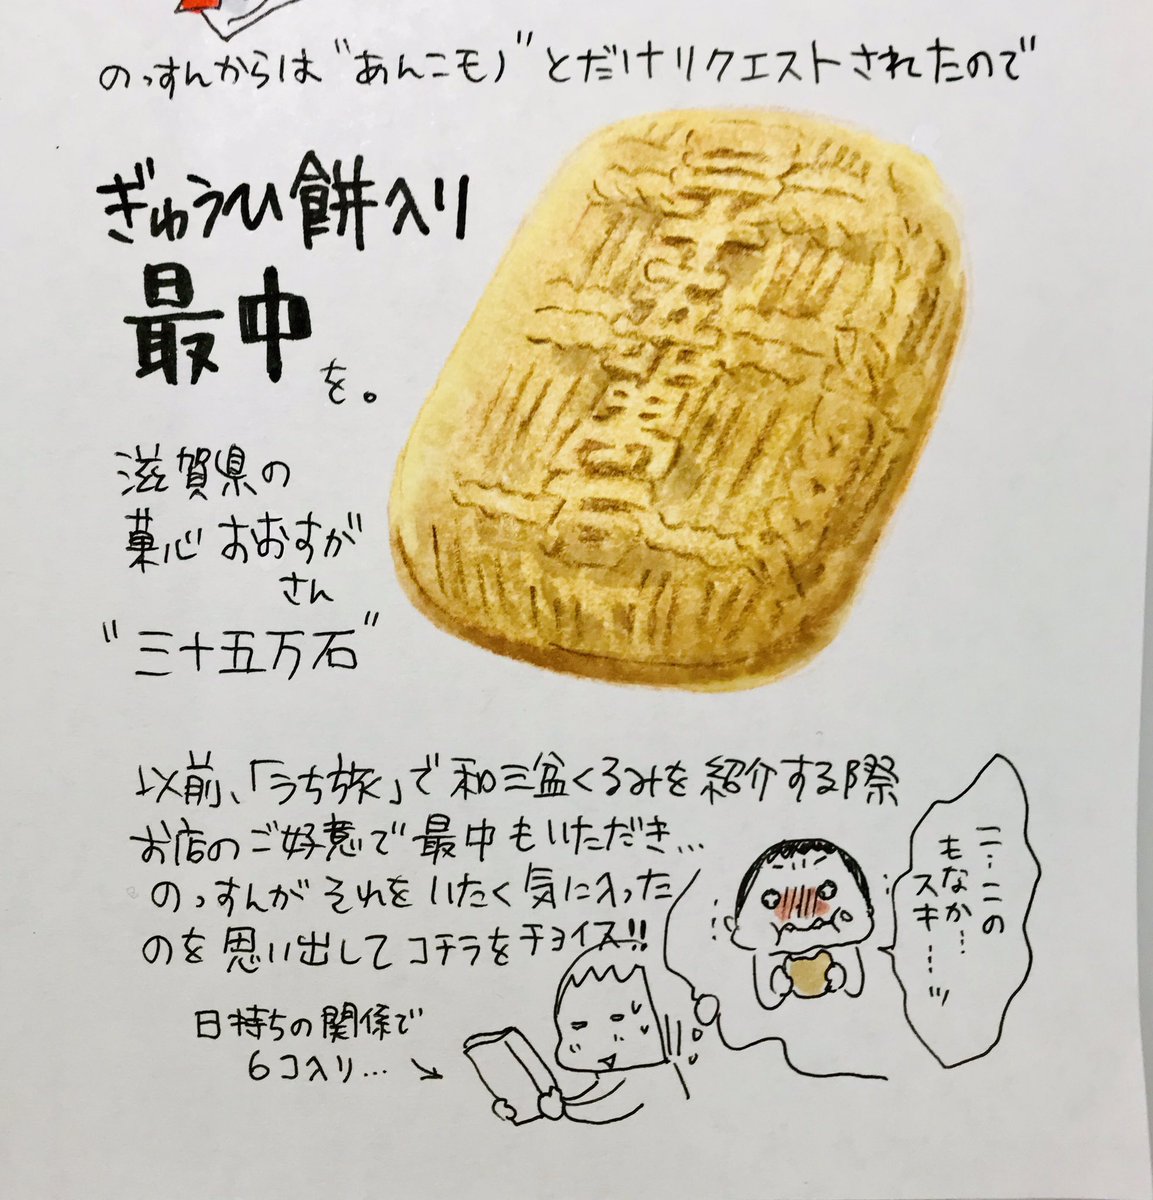 のっすんからは"あんこモノ"とだけリクエストされたので
ぎゅうひ餅入り
最中を。
滋賀県の
菓心おおすが
さん
"三十五万石"
以前、「うち旅」で和三盆くるみを紹介する際
お店のご好意で最中もいただき…
のっすんがそれをいたく気に入った
のを思い出してコチラをチョイス!!
ニ…ニの
もなか…
スキ……ッ
日持ちの関係で
6コ入り…→